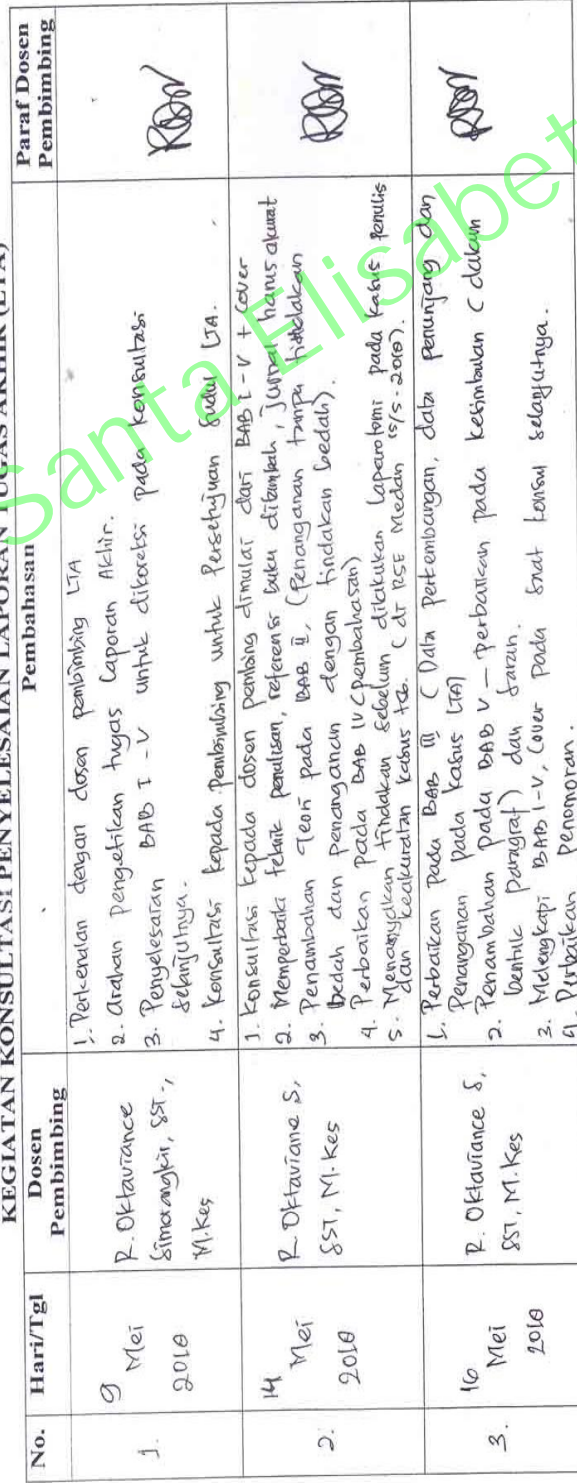 KEGIATAN KONSULTASI PENYELESAIAN LAPORAN TUGAS AKHIR (LTA)
No.
Hari/Tgl
Dosen
Pembimbing
Pembahasan
Paraf Dosen
Pembimbing
1.
9
Mei
2018
R. Oktaviance
Simorangkir, SST.,
M.Kes
1. Perkenalan dengan dosen pembimbing LTA
2. Arahan pengetikan tugas Laporan Akhir.
3. Penyelesaian BAB I - V untuk dikoreksi pada konsultasi
selanjutnya.
4. Konsultasi kepada pembimbing untuk Persetujuan Judul LTA.
2.
14
Mei
2018
R. Oktaviane S,
SST, M.Kes
1. Konsultasi kepada dosen pembing dimulai dari BAB I - V + Cover
2. Memperbaiki teknik penulisan, referensi buku ditambah, Jurnal harus akurat
3. Penambahan Teori pada BAB II, (Penanganan tanpa tindakan
bedah dan penanganan dengan tindakan bedah).
4. Perbaikan pada BAB IV (pembahasan)
5. Menanyakan tindakan sebelum dilakukan Laparotomi pada kasus Penulis
dan keakuratan kasus tsb. (di RSE Medan 15/5-2018).
3.
16
Mei
2018
R. Oktaviance S,
SST, M.Kes
1. Perbaikan pada BAB III (Data perkembangan, data penunjang dan
Penanganan pada kasus LTA)
2. Penambahan pada BAB V – perbaikan pada kesimbulan (dalam
bentuk paragraf) dan saran.
3. Melengkapi BAB I-V, Cover pada Saat konsul selanjutnya.
4. Perbaikan penomoran.
Santa Elisabet